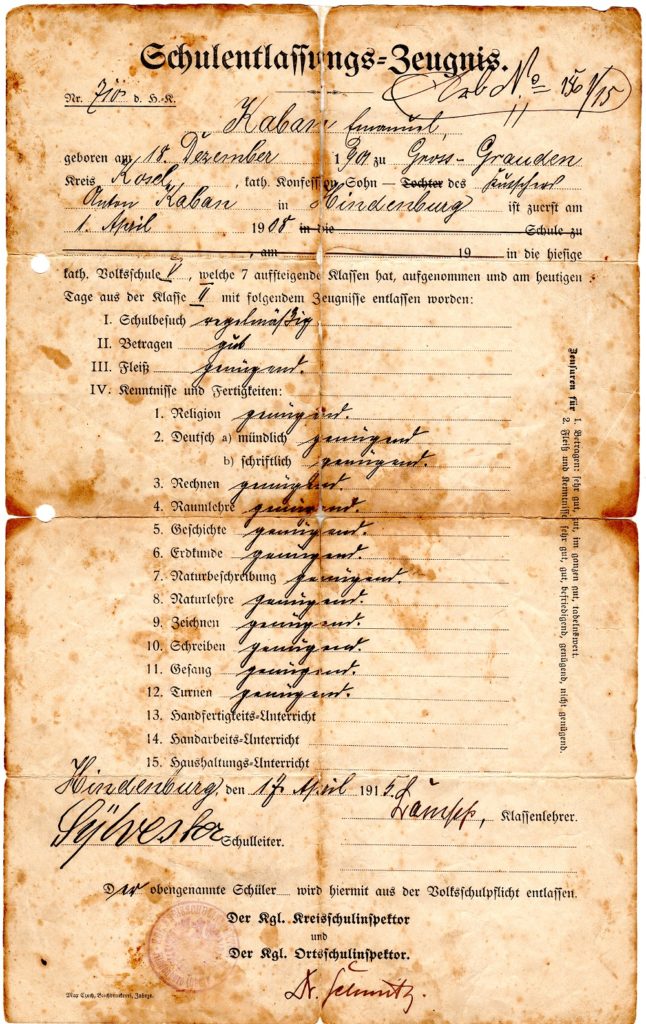 Schulentlassungs-Zeugnis.
Nr. 710 d. H.-K.
N.o 150 1/15
Kaban Emanuel,
geboren am 18. Dezember 1901 zu Gross-Grauden
Kreis Kosel, kath. Konfession Sohn — Tochter des Kutschers
Anton Kaban in Hindenburg ist zuerst am
1. April 1908 in die Schule zu
, am 19 in die hiesige
kath. Volksschule V, welche 7 aufsteigende Klassen hat, aufgenommen und am heutigen
Tage aus der Klasse II mit folgendem Zeugnisse entlassen worden:
I. Schulbesuch regelmäßig
II. Betragen gut
III. Fleiß genügend.
IV. Kenntnisse und Fertigkeiten:
1. Religion genügend.
2. Deutsch a) mündlich genügend
b) schriftlich genügend.
3. Rechnen genügend.
4. Raumlehre genügend.
5. Geschichte genügend.
6. Erdkunde genügend.
7. Naturbeschreibung genügend.
8. Naturlehre genügend.
9. Zeichnen genügend.
10. Schreiben genügend.
11. Gesang genügend.
12. Turnen genügend.
13. Handfertigkeits-Unterricht
14. Handarbeits-Unterricht
15. Haushaltungs-Unterricht
Zensuren für 1. Betragen: sehr gut, gut, im ganzen gut, tadelnswert.
2. Fleiß und Kenntnisse sehr gut, gut, befriedigend, genügend, nicht genügend.
Hindenburg, den 17 April 1915.
Klassenlehrer.
Sylvester Schulleiter.
Der obengenannte Schüler wird hiermit aus der Volksschulpflicht entlassen.
Der Kgl. Kreisschulinspektor
und
Der Kgl. Ortsschulinspektor.
Dr. Schmitz.
Max Czech, Buchdruckerei, Zabrze.